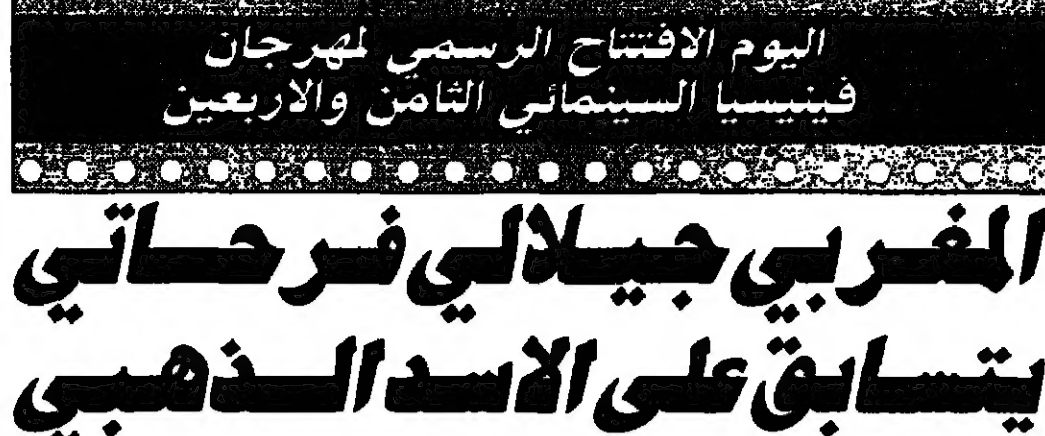 اليوم الافتتاح الرسمي لمهرجان
فينيسيا السينمائي الثامن والاربعين
المغربي جيلالي فرحاتي
يتسابق على الاسد الذهبي